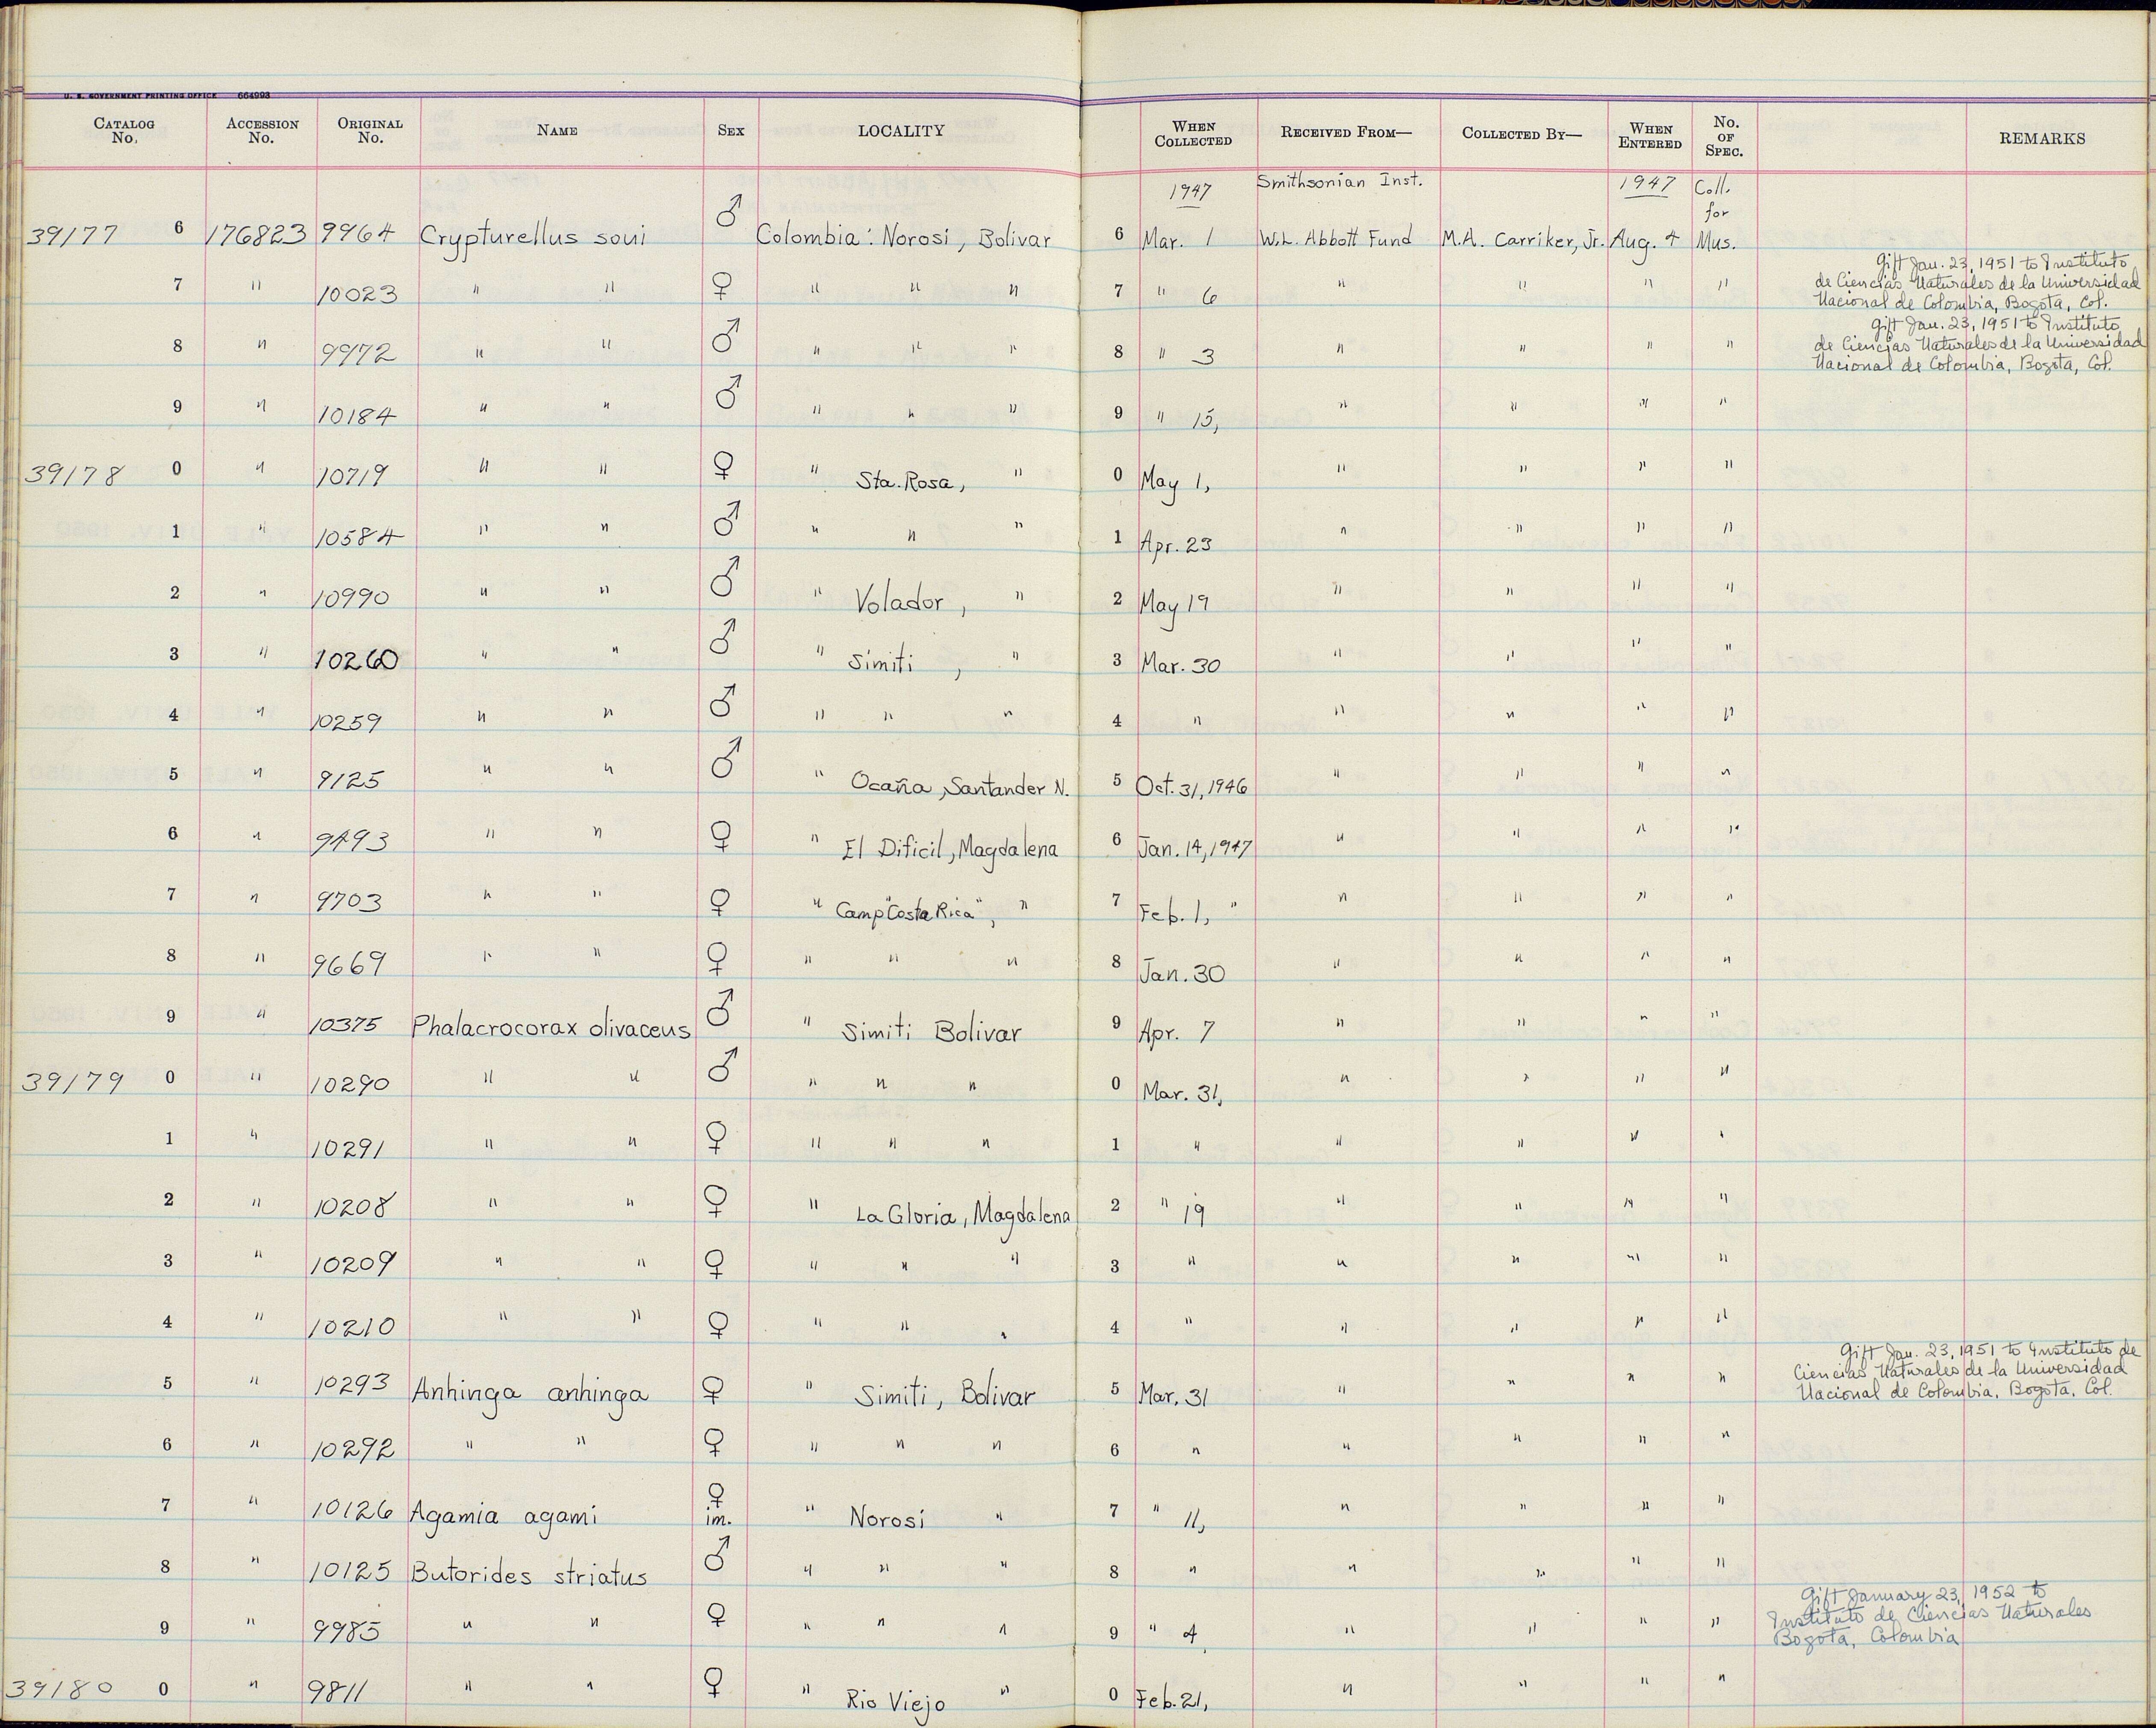 U. S. GOVERNMENT PRINTING OFFICE 664993
CATALOG No. ACCESSION No. ORIGINAL No. NAME SEX LOCALITY WHEN COLLECTED RECEIVED FROM— COLLECTED BY— WHEN ENTERED No. OF SPEC. REMARKS
1947 Smithsonian Inst. 1947 Coll. for
39177 6 176823 9964 Crypturellus soui ♂ Colombia: Norosi, Bolivar 6 Mar. 1 W.L. Abbott Fund M.A. Carriker, Jr. Aug. 4 Mus.
7 " 10023 " " ♀ " " " 7 " 6 " " " " Gift Jan. 23, 1951 to Instituto
de Ciencias Naturales de la Universidad
Nacional de Colombia, Bogota, Col.
8 " 9972 " " ♂ " " " 8 " 3 " " " " Gift Jan. 23, 1951 to Instituto
de Ciencias Naturales de la Universidad
Nacional de Colombia, Bogota, Col.
9 " 10184 " " ♂ " " " 9 " 15, " " " "
39178 0 " 10719 " " ♀ " Sta. Rosa, " 0 May 1, " " " "
1 " 10584 " " ♂ " " " 1 Apr. 23 " " " "
2 " 10990 " " ♂ " Volador, " 2 May 19 " " " "
3 " 10260 " " ♂ " Simiti, " 3 Mar. 30 " " " "
4 " 10259 " " ♂ " " " 4 " " " " "
5 " 9125 " " ♂ " Ocaña, Santander N. 5 Oct. 31, 1946 " " " "
6 " 9493 " " ♀ " El Dificil, Magdalena 6 Jan. 14, 1947 " " " "
7 " 9703 " " ♀ " Camp "Costa Rica", " 7 Feb. 1, " " " " "
8 " 9669 " " ♀ " " " 8 Jan. 30 " " " "
9 " 10375 Phalacrocorax olivaceus ♂ " Simiti Bolivar 9 Apr. 7 " " " "
39179 0 " 10290 " " ♂ " " " 0 Mar. 31, " " " "
1 " 10291 " " ♀ " " " 1 " " " " "
2 " 10208 " " ♀ " La Gloria, Magdalena 2 " 19 " " " "
3 " 10209 " " ♀ " " " 3 " " " " "
4 " 10210 " " ♀ " " " 4 " " " " "
5 " 10293 Anhinga anhinga ♀ " Simiti, Bolivar 5 Mar. 31 " " " " Gift Jan. 23, 1951 to Instituto de
Ciencias Naturales de la Universidad
Nacional de Colombia, Bogota, Col.
6 " 10292 " " ♀ " " " 6 " " " " "
7 " 10126 Agamia agami ♀ im. " Norosi " 7 " 11, " " " "
8 " 10125 Butorides striatus ♂ " " " 8 " " " " "
9 " 9985 " " ♀ " " " 9 " 4, " " " " Gift January 23, 1952 to
Instituto de Ciencias Naturales
Bogota, Colombia
39180 0 " 9811 " " ♀ " Rio Viejo " 0 Feb. 21, " " " "